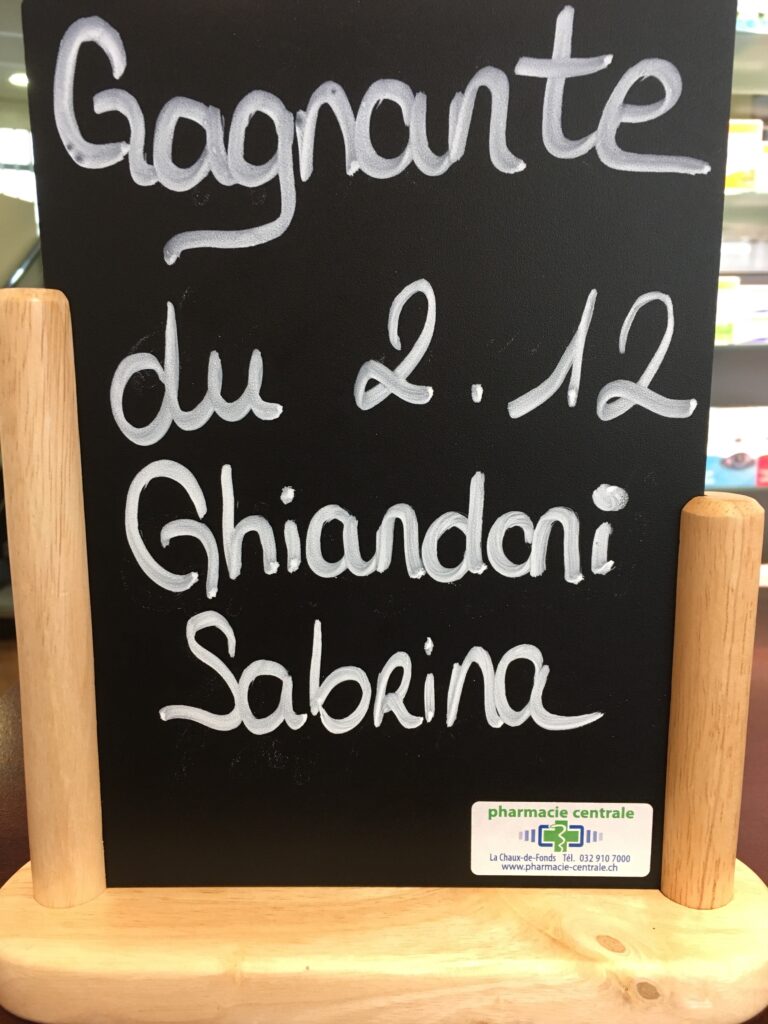 Gagnante
du 2.12
Ghiandoni
Sabrina
pharmacie centrale
La Chaux-de-Fonds Tél. 032 910 7000
www.pharmacie-centrale.ch